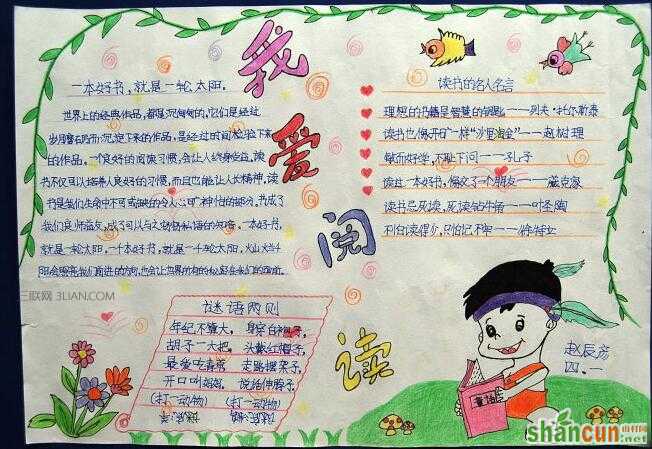 我爱阅读
一本好书，就是一轮太阳。
世界上的经典作品，都是沉甸甸的，它们是经过
岁月磨石而沉淀下来的作品，是经过时间检验下来
的作品。一个良好的阅读习惯，会让人终身受益。读
书不仅可以培养人良好的习惯，而且也能让人长精神。读
书是我们生命中不可或缺的令人心向神怡的部分。书成了
我们良师益友，成了可以与之
一本好书，
就是一轮太阳，一千本好书，就是一千轮太阳，
谜语两则
年纪不算大，
胡子一大把，
最爱吃青菜
开口叫
(打一动物)
头戴红帽子，
走路摆架子，
说话伸脖子，
(打一动物)
读书的名人名言
理想的书籍是智慧的钥匙——列夫·托尔斯泰
读书也像开矿一样"沙里淘金"——赵树理
敏而好学，不耻下问——孔子
读过一本好书，像交了一个朋友——臧克家
读书忌死读，死读钻牛角——叶圣陶
——徐特立
童话
赵辰彦
四．一
三联网 3LIAN.COM
shancun
山村网
.net